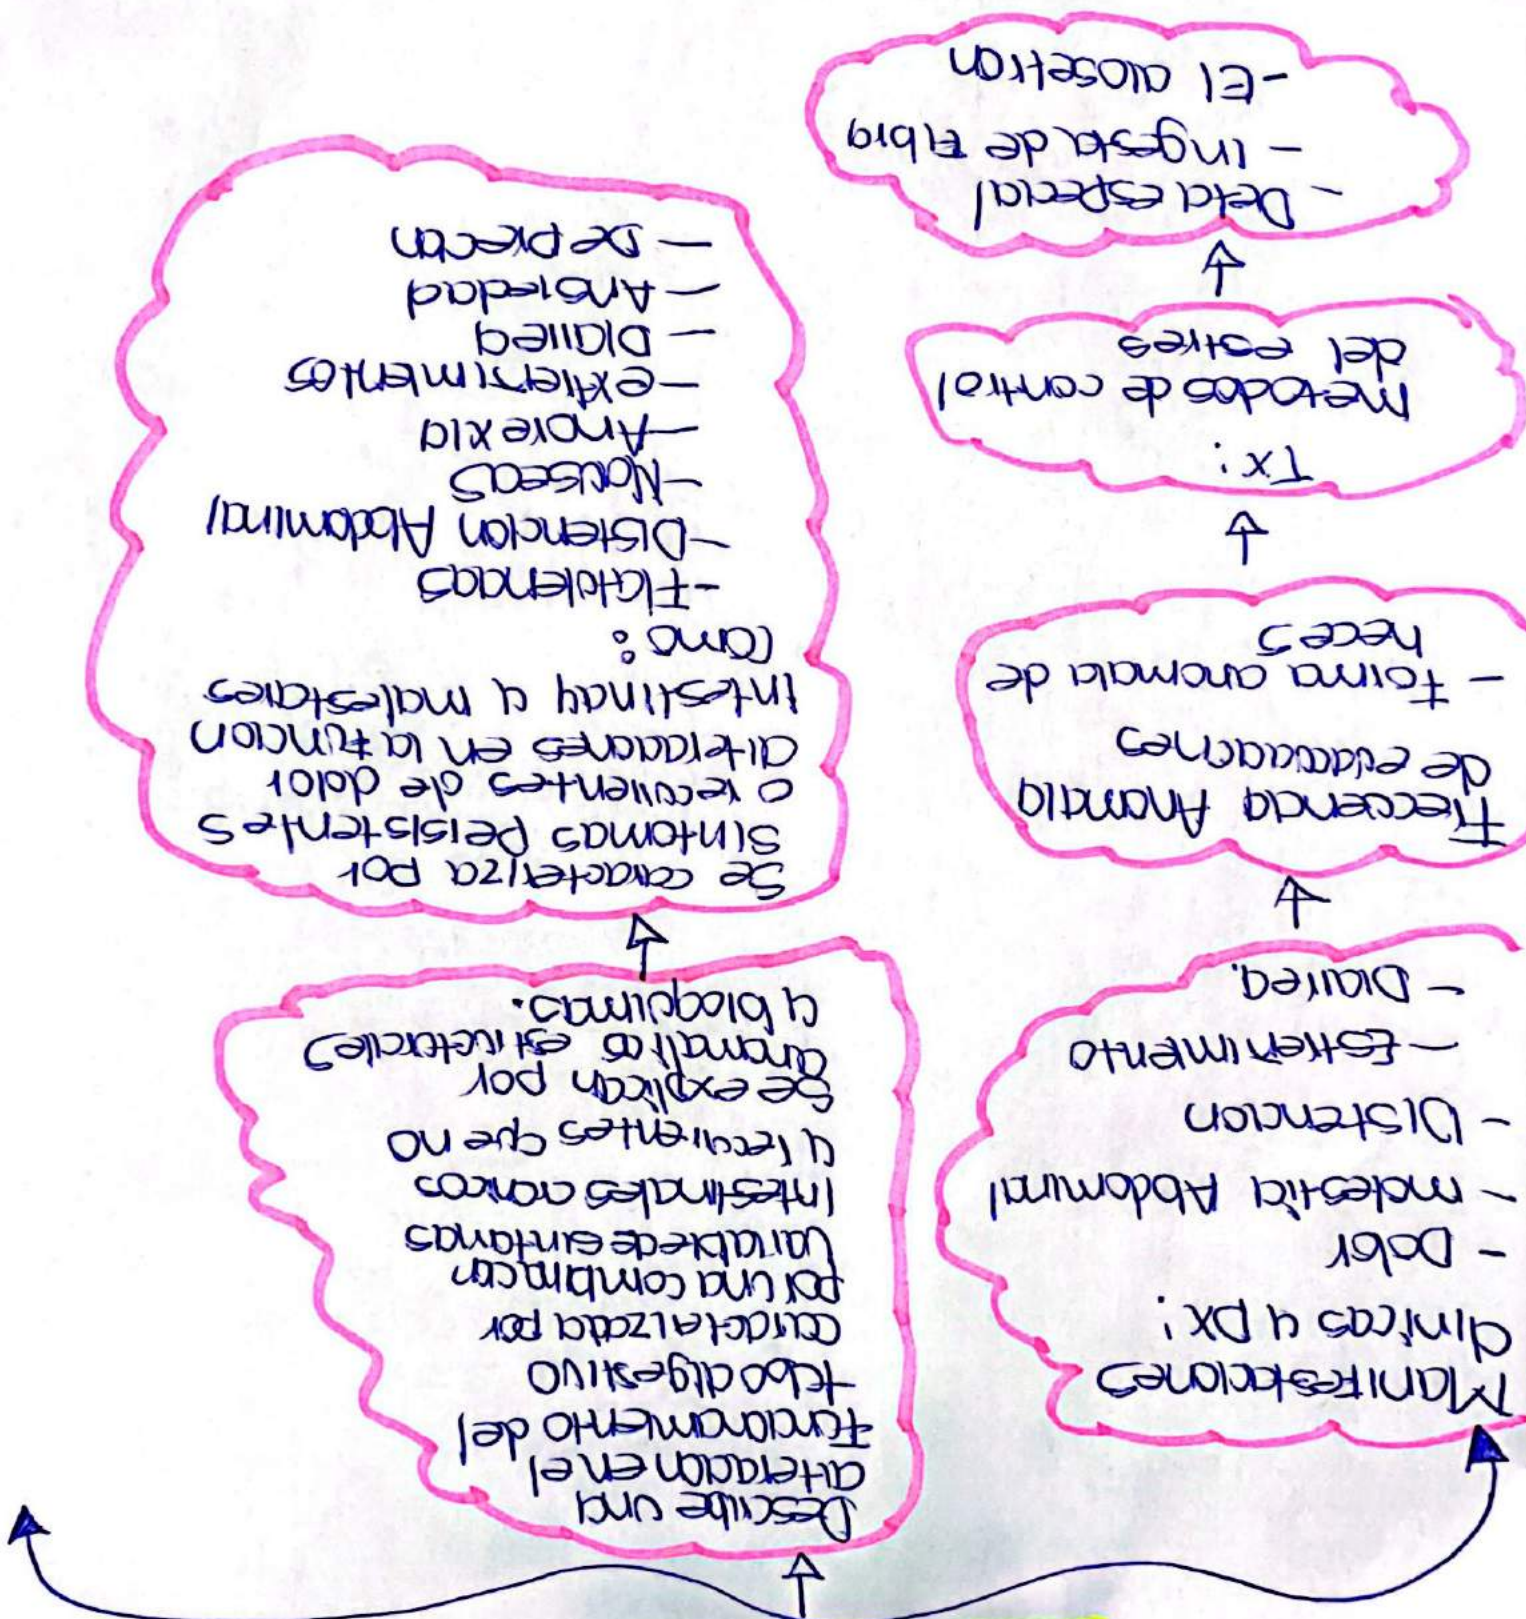 Manifestaciones
clinicas y Dx:
- Dolor
- molestia Abdominal
- Distencion
- Estreñimiento
- Diarrea.
Frecuencia Anomala
de evacuaciones
- Forma anomala de
heces
Tx:
Metodos de control
del estres
- Dieta especial
- Ingesta de Fibra
- El alosetron
Describe una
alteracion en el
Funcionamiento del
tubo digestivo
caracterizada por
por una combinacion
variable de sintomas
intestinales cronicos
y recurrentes que no
se explican por
anomalias estructurales
y bioquimas.
Se caracteriza por
sintomas persistentes
o recurrentes de dolor
alteraciones en la funcion
intestinay y malestares
como:
- Flatolencias
- Distencion Abdominal
- Nauseas
- Anorexia
- extrenimientos
- Diarrea
- Ansiedad
- Deprecon